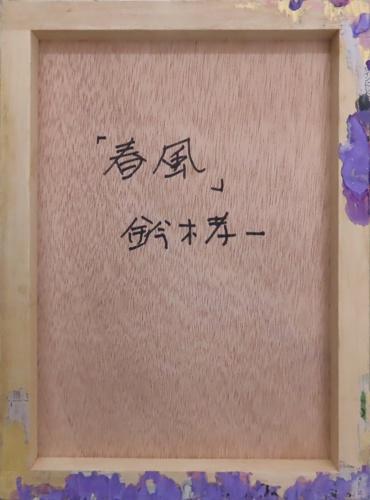 「春風」
鈴木孝一